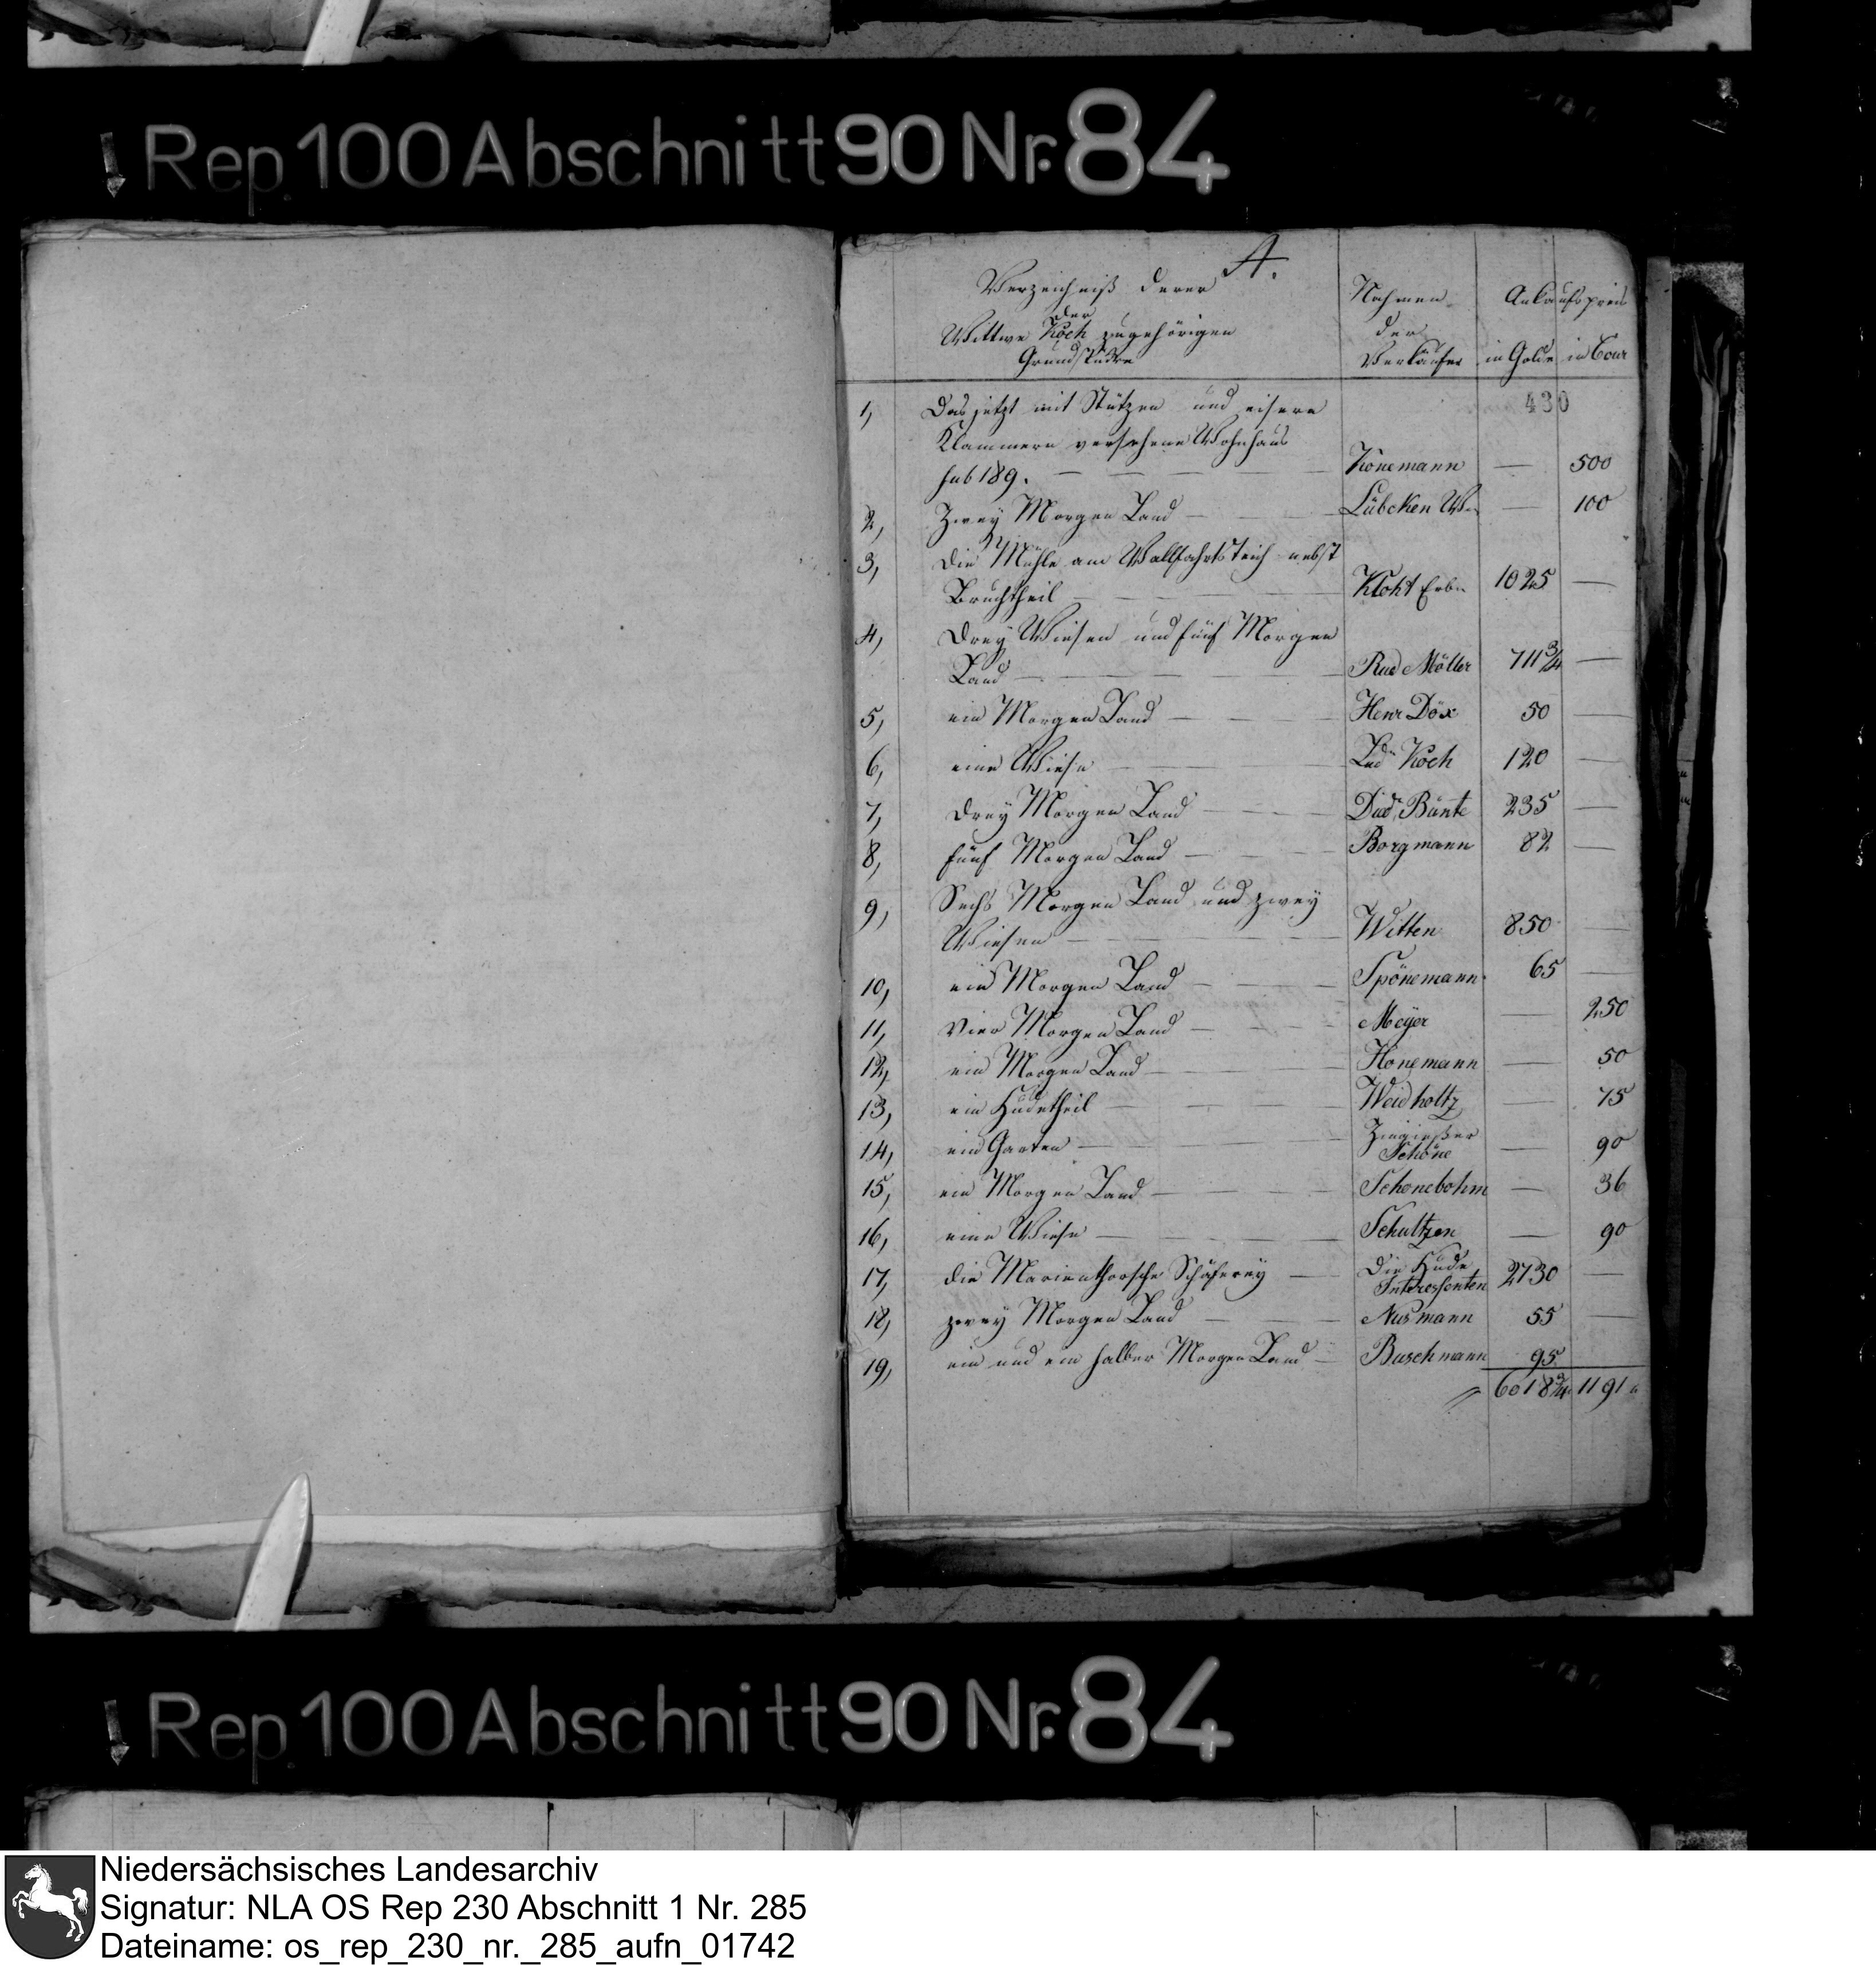 Rep 100 Abschnitt 90 Nr. 84
A.
Verzeichniß derer
der
Wittwe Koch zugehörigen
Grundstücke
Nahmen
der
Verkäufer
Ankaufspreis
in Golde in Cour
430
1, Das jetzt mit Stützen und eisern
Klammern versehene Wohnhaus
sub 189. — Könemann — 500
2, Zwey Morgen Land — Lübcken W. — 100
3, Die Mühle am Wallfahrtsteich nebst
Bruchtheil — Klöht Erbn 1025 —
4, Drey Wiesen und fünf Morgen
Land — Rud Möller 711 3/4 —
5, ein Morgen Land — Henr Döx 50 —
6, eine Wiese — Lud Koch 120 —
7, Drey Morgen Land — Died. Bünte 235 —
8, fünf Morgen Land — Borgmann 82 —
9, Sechs Morgen Land und zwey
Wiesen — Witten 850 —
10, ein Morgen Land — Spönemann 65 —
11, Vier Morgen Land — Meÿer — 250
12, ein Morgen Land — Honemann — 50
13, ein Hudetheil — Weidholtz — 75
14, ein Garten — Zingießer
Schöne — 90
15, ein Morgen Land — Schonebohm — 36
16, eine Wiese — Schultzen — 90
17, die Marienthorsche Schäferey — Die Hude
Interessenten 2730 —
18, zwey Morgen Land — Nusmann 55 —
19, ein und ein halber Morgen Land — Buschmann 95
6018 3/4 1191
Rep 100 Abschnitt 90 Nr. 84
Niedersächsisches Landesarchiv
Signatur: NLA OS Rep 230 Abschnitt 1 Nr. 285
Dateiname: os_rep_230_nr._285_aufn_01742